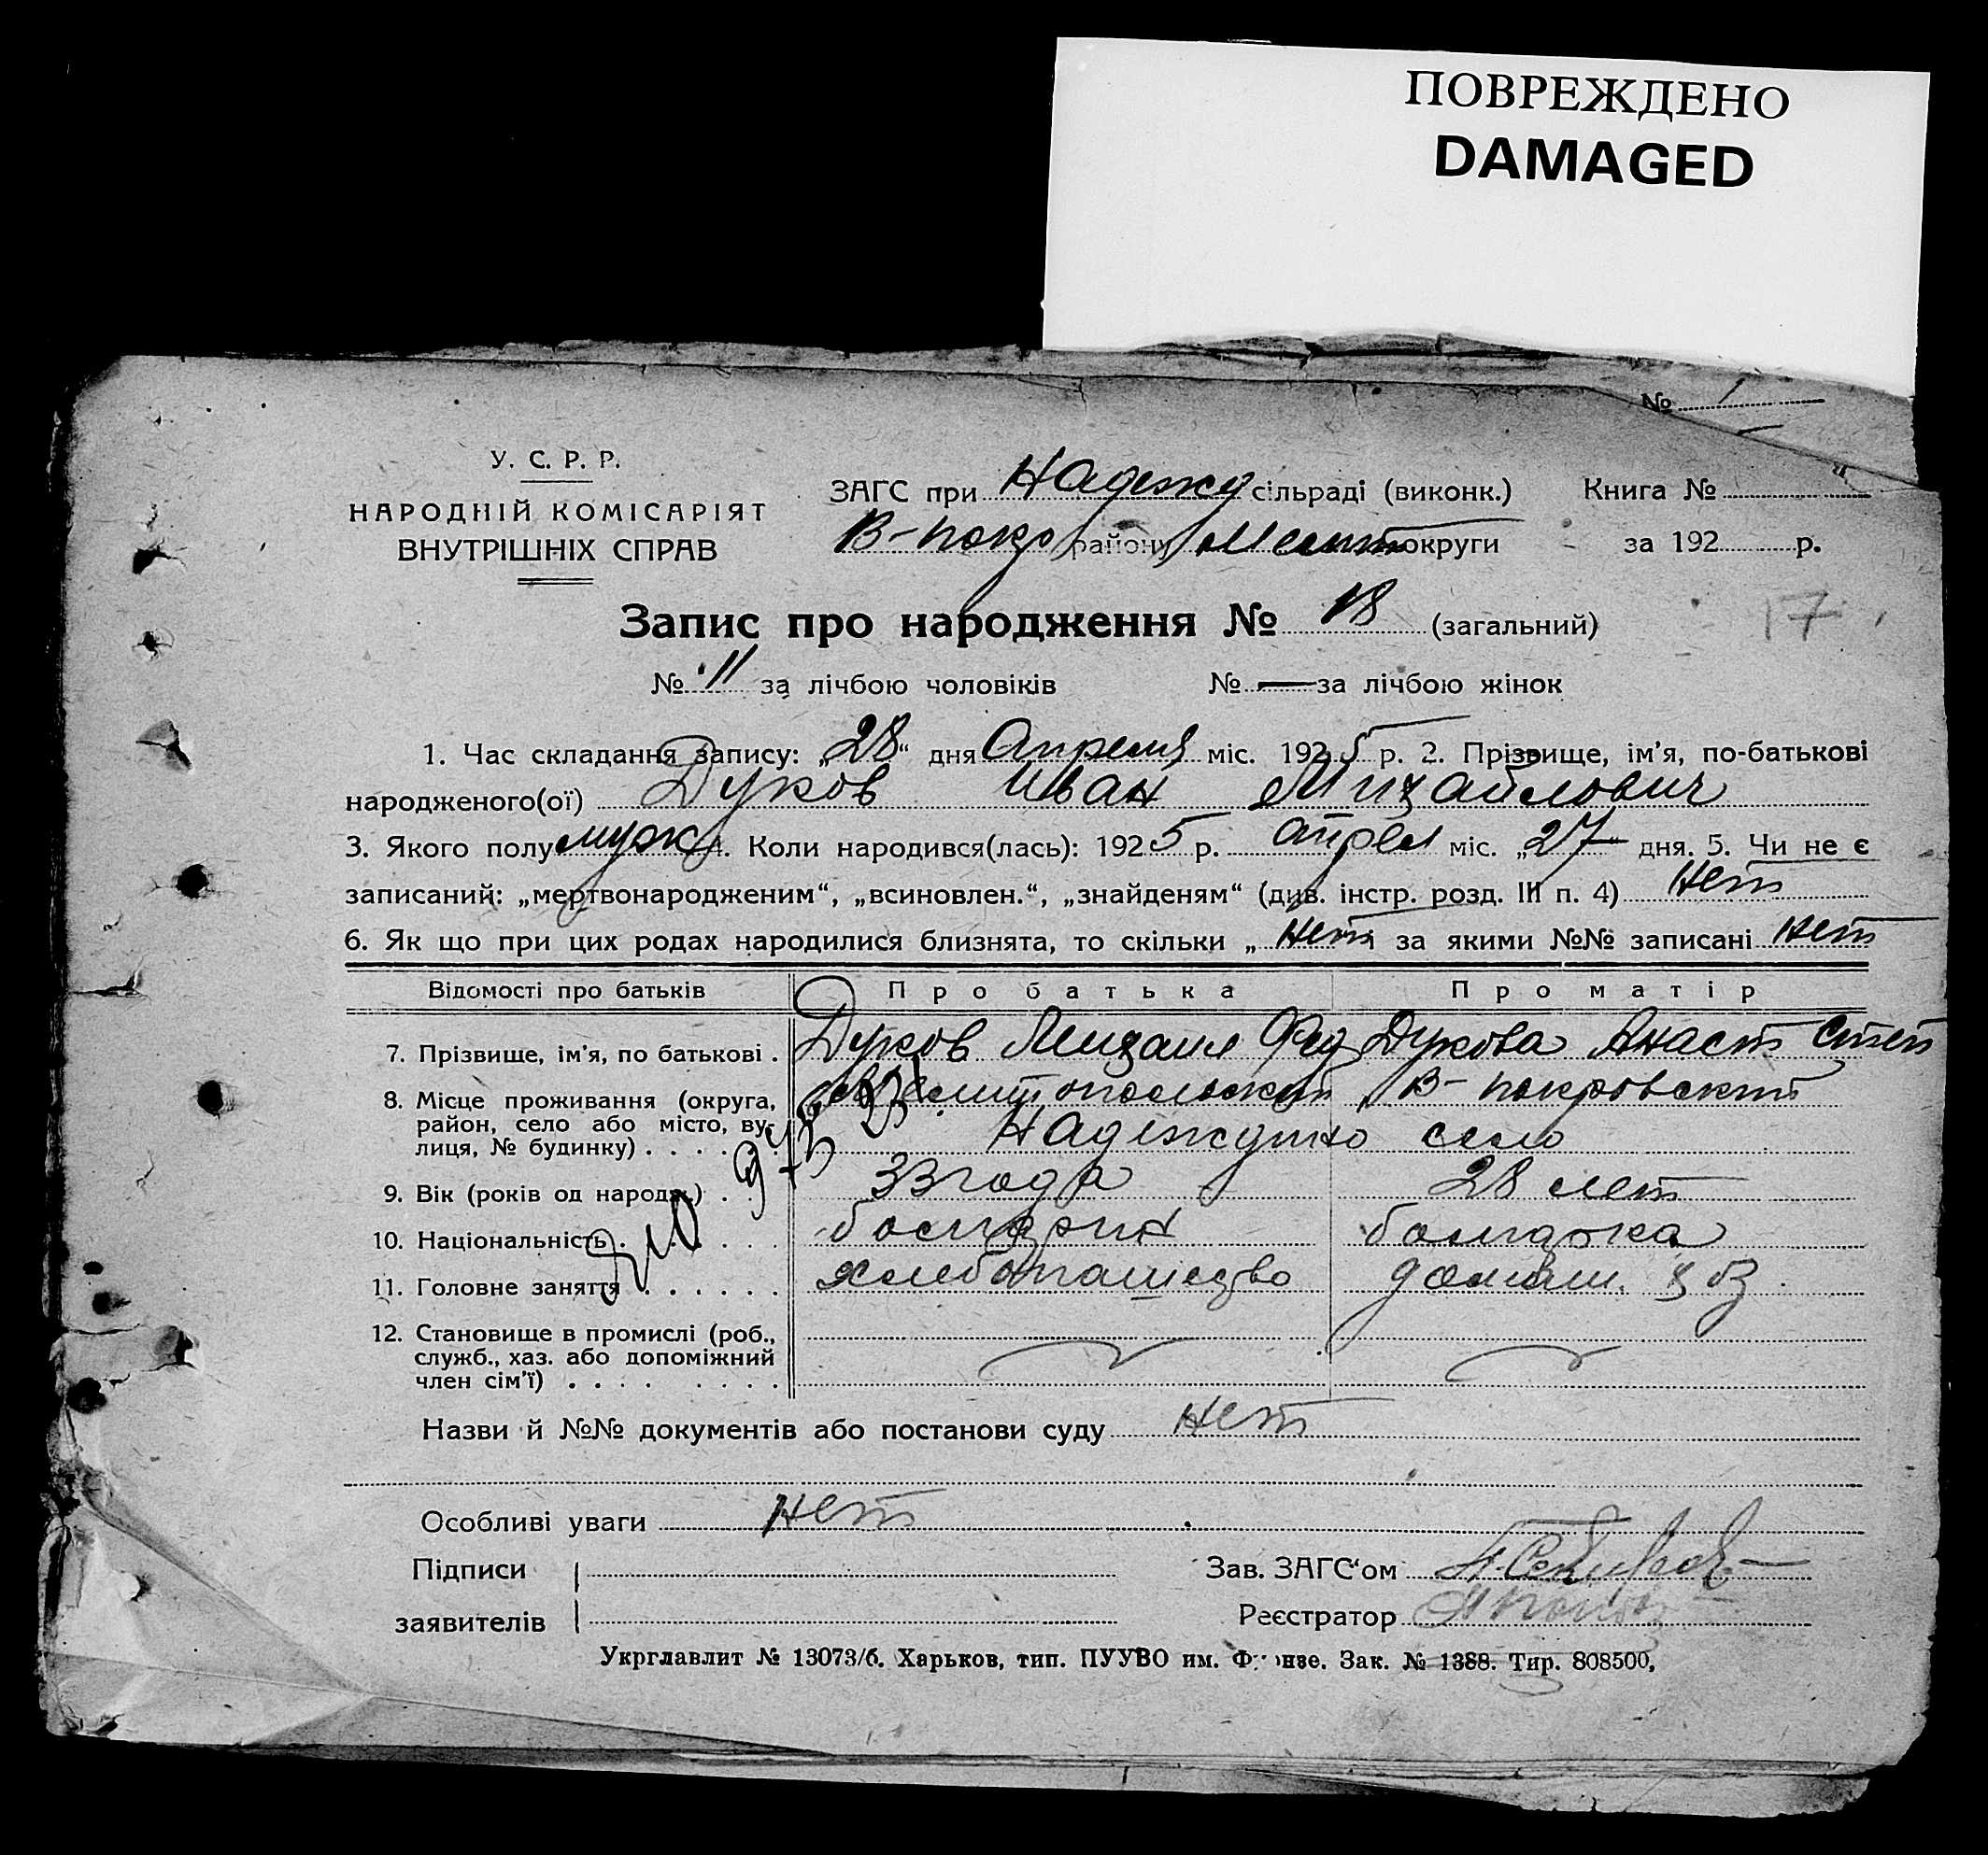 ПОВРЕЖДЕНО
DAMAGED
№
У. С. Р. Р.
НАРОДНІЙ КОМІСАРІЯТ
ВНУТРІШНІХ СПРАВ
ЗАГС при Надежд сільраді (виконк.) Книга №
В-покр району Мелит округи за 192 р.
Запис про народження № 18 (загальний)
17
№ 11 за лічбою чоловіків № — за лічбою жінок
1. Час складання запису: „28“ дня Апреля міс. 1925 р. 2. Прізвище, ім’я, по-батькові
народженого(ої) Дуков Иван Михайлович
3. Якого полу муж 4. Коли народився(лась): 1925 р. апрел міс. „27“ дня. 5. Чи не є
записаний: „мертвонародженим“, „всиновлен.“, „знайденям“ (див. інстр. розд. III п. 4) Нет
6. Як що при цих родах народилися близнята, то скільки „ Нет за якими №№ записані Нет
Відомості про батьків Про батька Про матір
7. Прізвище, ім’я, по батькові . Дуков Михаил Фед Дукова Анаст Степ
8. Місце проживання (округа, район, село або місто, вулиця, № будинку) Мелитопольский В-покровский
село
9. Вік (років од народж.) 33 года 28 лет
10. Національність болгарин болгарка
11. Головне заняття хлебопашество домаш.
12. Становище в промислі (роб., служб., хаз. або допоміжний член сім’ї)
Назви й №№ документів або постанови суду Нет
Особливі уваги Нет
Підписи
заявителів
Зав. ЗАГС‘ом
Реєстратор
Укрглавлит № 13073/б. Харьков, тип. ПУУВО им. Фрунзе. Зак. № 1388. Тир. 808500.